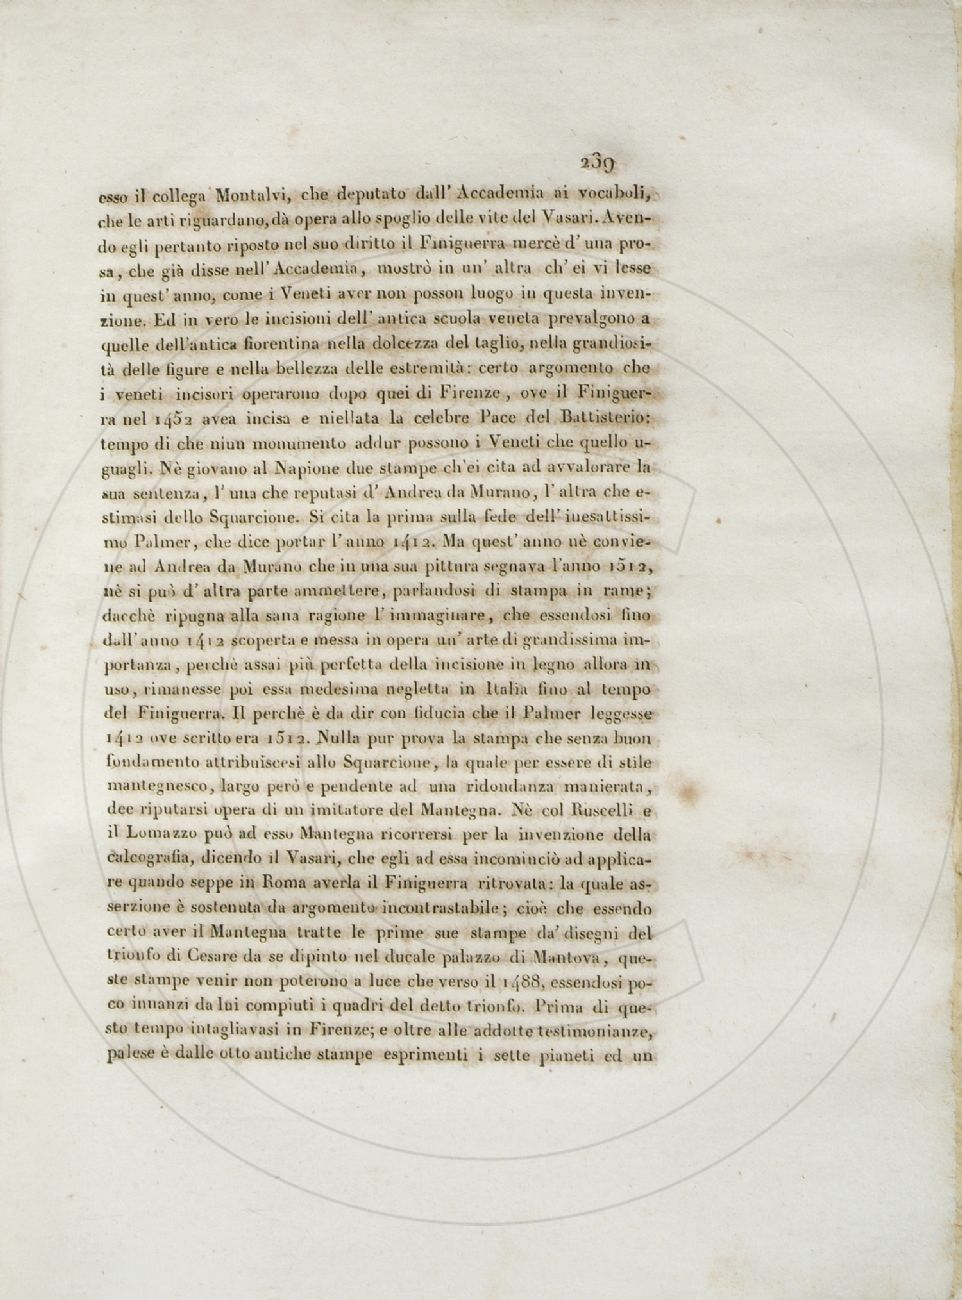 239
esso il collega Montalvi, che deputato dall' Accademia ai vocaboli,
che le arti riguardano, dà opera allo spoglio delle vite del Vasari. Aven-
do egli pertanto riposto nel suo diritto il Finiguerra mercè d' una pro-
sa, che già disse nell' Accademia, mostrò in un' altra ch' ei vi lesse
in quest' anno, come i Veneti aver non posson luogo in questa inven-
zione. Ed in vero le incisioni dell' antica scuola veneta prevalgono a
quelle dell'antica fiorentina nella dolcezza del taglio, nella grandiosi-
tà delle figure e nella bellezza delle estremità: certo argomento che
i veneti incisori operarono dopo quei di Firenze, ove il Finiguer-
ra nel 1452 avea incisa e niellata la celebre Pace del Battisterio:
tempo di che niun monumento addur possono i Veneti che quello u-
guagli. Nè giovano al Napione due stampe ch'ei cita ad avvalorare la
sua sentenza, l' una che reputasi d' Andrea da Murano, l' altra che e-
stimasi dello Squarcione. Si cita la prima sulla fede dell' inesattissi-
mo Palmer, che dice portar l' anno 1412. Ma quest' anno nè convie-
ne ad Andrea da Murano che in una sua pittura segnava l'anno 1512,
nè si può d' altra parte ammettere, parlandosi di stampa in rame;
dacchè ripugna alla sana ragione l' immaginare, che essendosi fino
dall' anno 1412 scoperta e messa in opera un' arte di grandissima im-
portanza, perchè assai più perfetta della incisione in legno allora in
uso, rimanesse poi essa medesima negletta in Italia fino al tempo
del Finiguerra. Il perchè è da dir con fiducia che il Palmer leggesse
1412 ove scritto era 1512. Nulla pur prova la stampa che senza buon
fondamento attribuiscesi allo Squarcione, la quale per essere di stile
mantegnesco, largo però e pendente ad una ridondanza manierata,
dee riputarsi opera di un imitatore del Mantegna. Nè col Ruscelli e
il Lomazzo può ad esso Mantegna ricorrersi per la invenzione della
calcografia, dicendo il Vasari, che egli ad essa incominciò ad applica-
re quando seppe in Roma averla il Finiguerra ritrovata: la quale as-
serzione è sostenuta da argomento incontrastabile; cioè che essendo
certo aver il Mantegna tratte le prime sue stampe da' disegni del
trionfo di Cesare da se dipinto nel ducale palazzo di Mantova, que-
ste stampe venir non poterono a luce che verso il 1488, essendosi po-
co innanzi da lui compiuti i quadri del detto trionfo. Prima di que-
sto tempo intagliavasi in Firenze; e oltre alle addotte testimonianze,
palese è dalle otto antiche stampe esprimenti i sette pianeti ed un